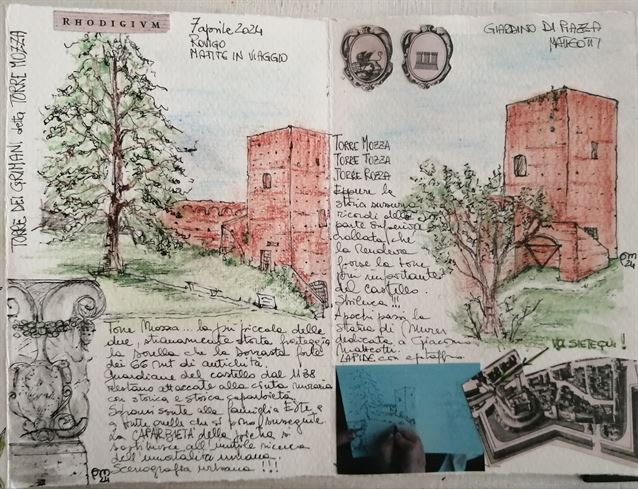 RHODIGIVM
7 aprile 2024
ROVIGO
MATITE IN VIAGGIO
TORRE DEI GRIMANI detta TORRE MOZZA
Torre Mozza... la più piccola delle
due, stranamente storta
la sorella che la sovrasta forte
dei 66 mt di antichità.
Guardiane del castello dal 1138
restano attaccate alla cinta muraria
con storica e storica caparbietà.
alla famiglia Este e
a tutte quelle che si sono susseguite.
La CAPARBIETÀ della
all'inutile ricerca
dell'immortalità umana.
Scenografia urbana !!!
GIARDINO DI PIAZZA
MATTEOTTI
TORRE MOZZA
TORRE TOZZA
TORRE ROZZA
Eppure la
storia sussurra
ricordi della
parte superiore
che
la rendeva
forse la torre
più importante
del castello.
A pochi passi la
statua di
dedicata a Giacomo
Matteotti.
LAPIDE con epitaffio.
VOI SIETE QUI !